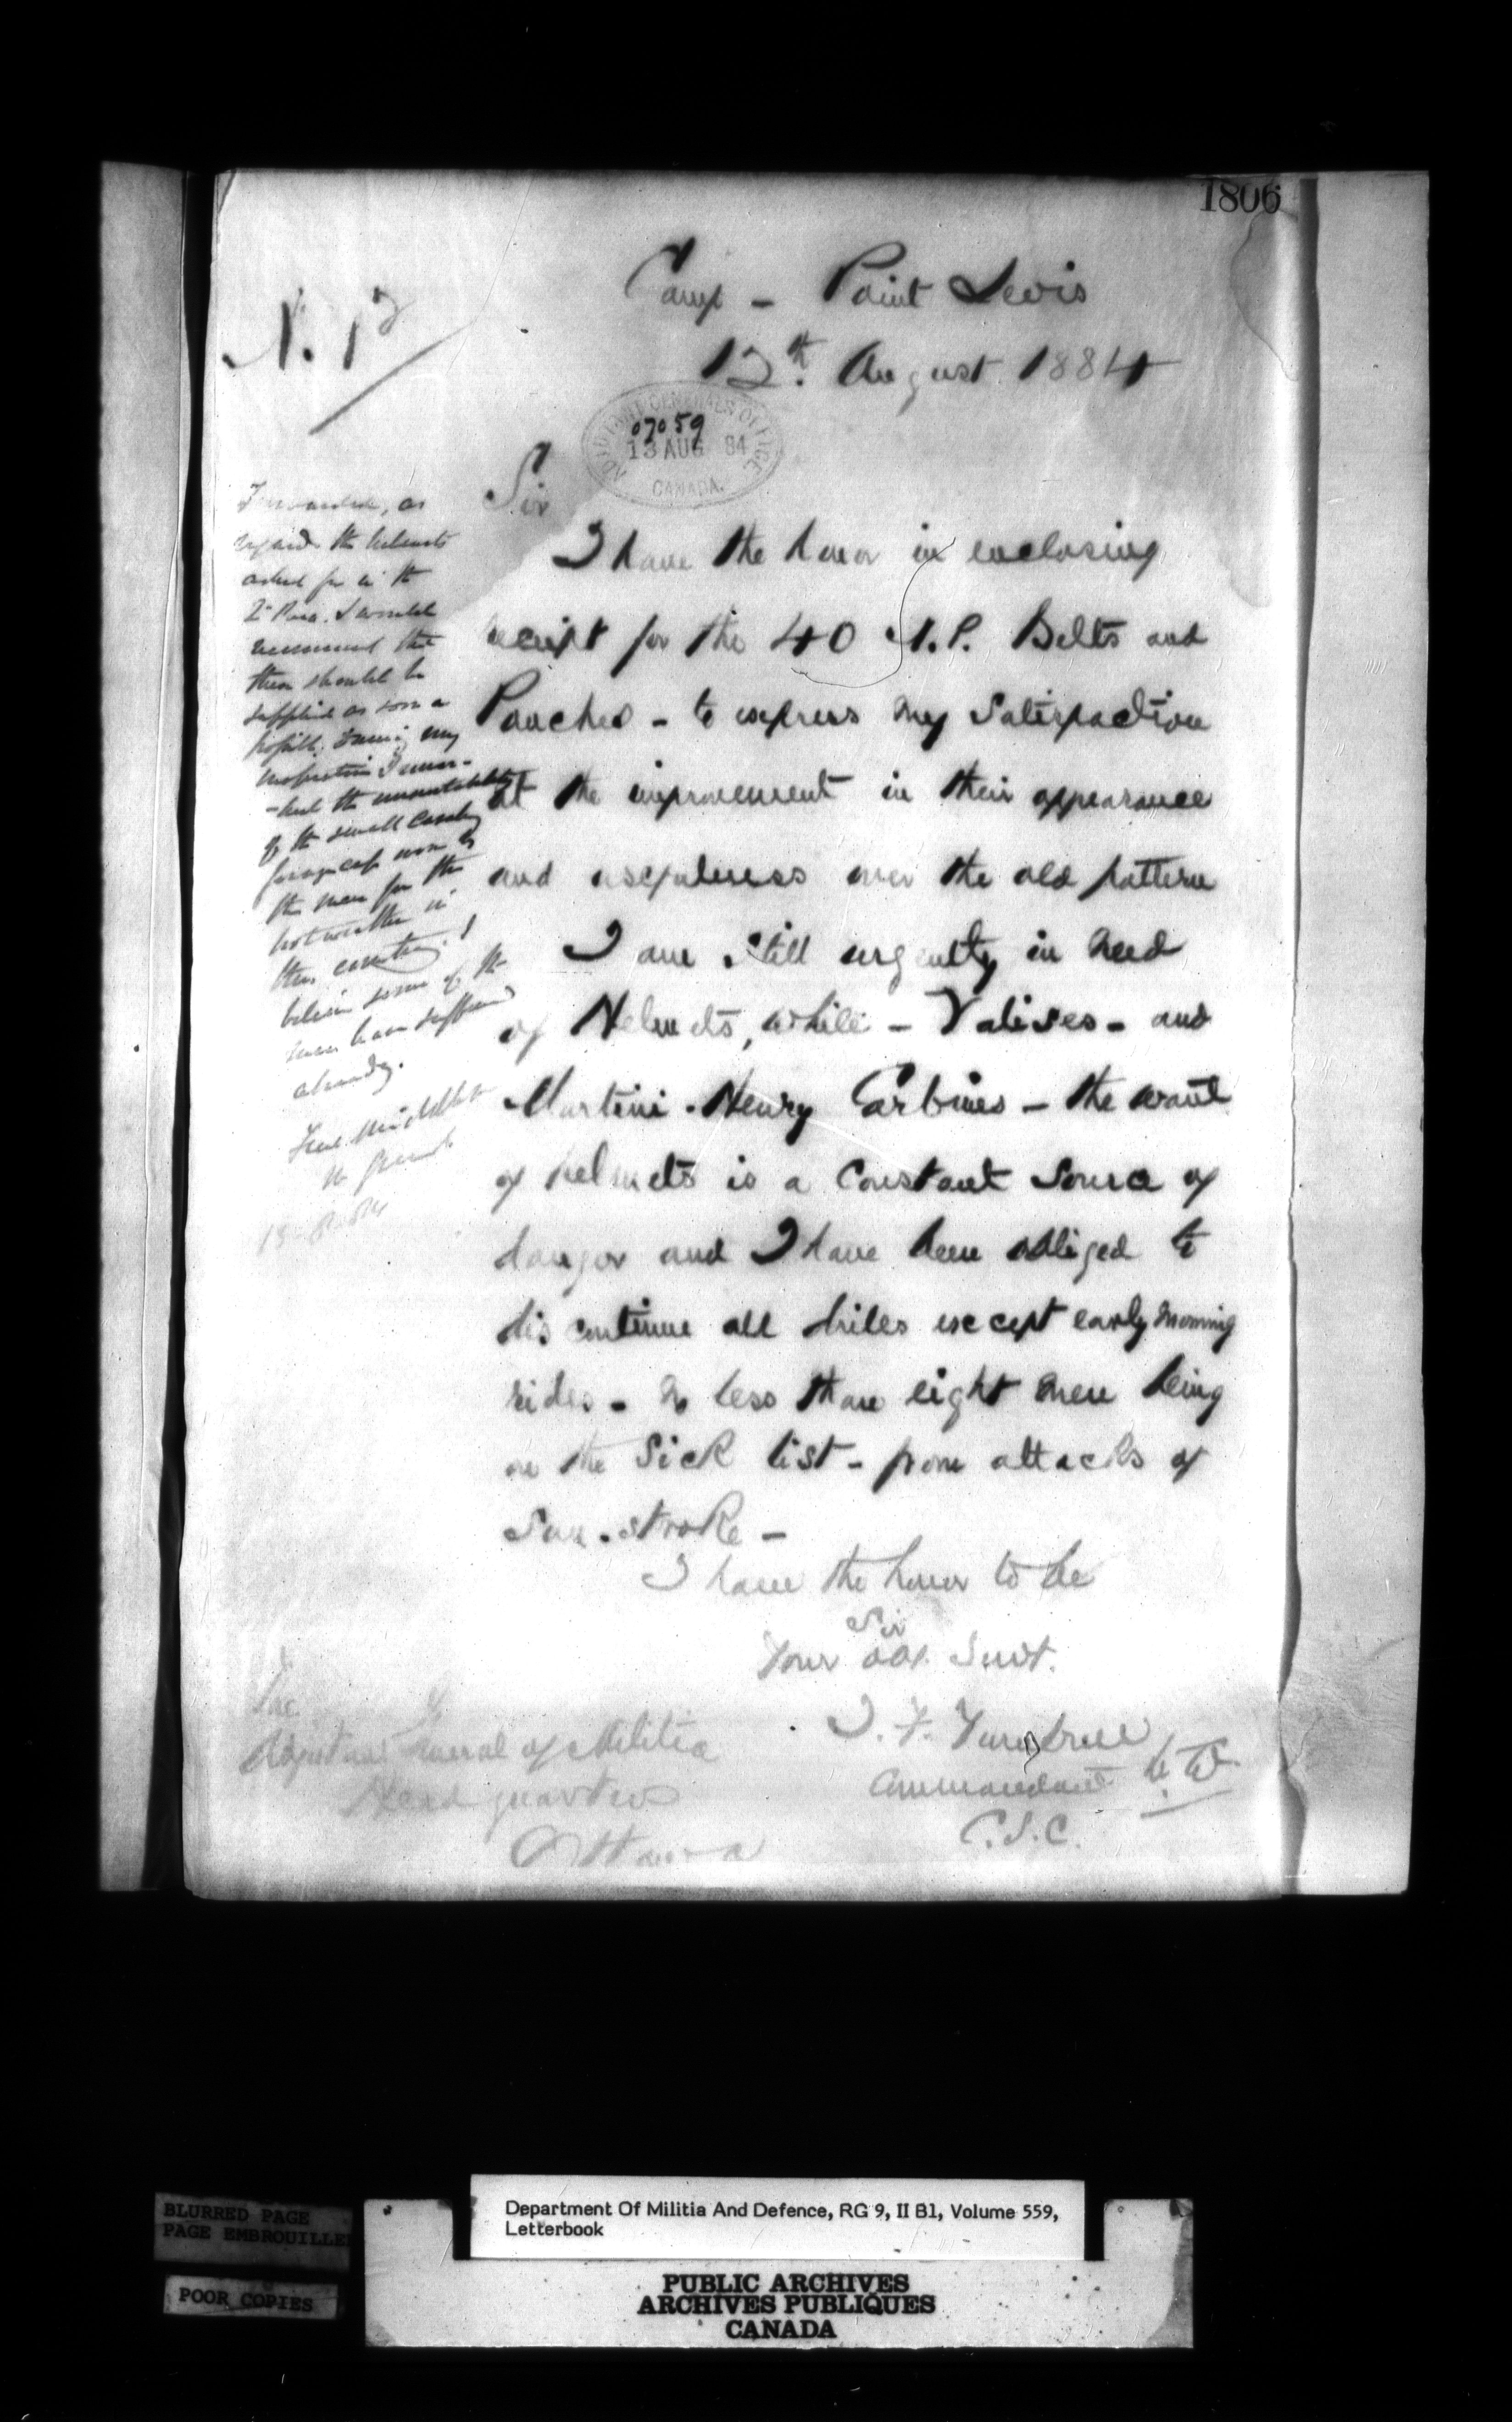 1806
Camp - Point Levis
12th. August 1884
ADJUTANT GENERAL'S OFFICE
07059
13 AUG 84
CANADA.
Sir
I have the honor in enclosing
receipt for the 40 N.P. Belts and
Pouches - to express my satisfaction
at the improvement in their appearance
and usefulness over the old pattern
I am still urgently in need
of Helmets, while - Valises - and
Martini-Henry Carbines - the want
of helmets is a constant source of
danger and I have been obliged to
discontinue all drills except early morning
rides - no less than eight men being
on the Sick list - from attacks of
Sun-stroke -
I have the honor to be
Sir
Your obt. Servt.
J. F. Turnbull
Commandant
C.S.C.
The
Adjutant General of Militia
Head quarters
Ottawa
Forwarded, as
regards the helmets
asked for in the
2d Para. I would
recommend that
these should be
supplied as soon as
possible. During my
inspection I remar-
-ked the unsuitability
of the small cavalry
forage cap worn by
the men for the
hot weather in
this country. I
believe some of the
men have suffered
already.
Fred Middleton
M General
BLURRED PAGE
PAGE EMBROUILLEE
POOR COPIES
Department Of Militia And Defence, RG 9, II B1, Volume 559,
Letterbook
PUBLIC ARCHIVES
ARCHIVES PUBLIQUES
CANADA